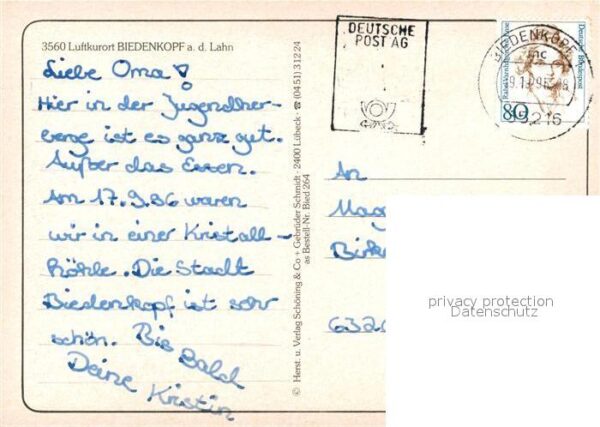 3560 Luftkurort BIEDENKOPF a. d. Lahn
Liebe Oma!
Hier in der Jugendher-
berge ist es ganz gut.
Außer das Essen.
Am 17.9.96 waren
wir in einer Kristall-
höhle. Die Stadt
Biedenkopf ist sehr
schön. Bis Bald
Deine Kristin
© Herst. u. Verlag Schöning & Co + Gebrüder Schmidt · 2400 Lübeck · ☎ (04 51) 3 12 24
as Bestell-Nr. Bied 264
DEUTSCHE
POST AG
BIEDENKOPF
mc
35216
Deutsche Bundespost
80
An
Mag
Birk
632
privacy protection
Datenschutz